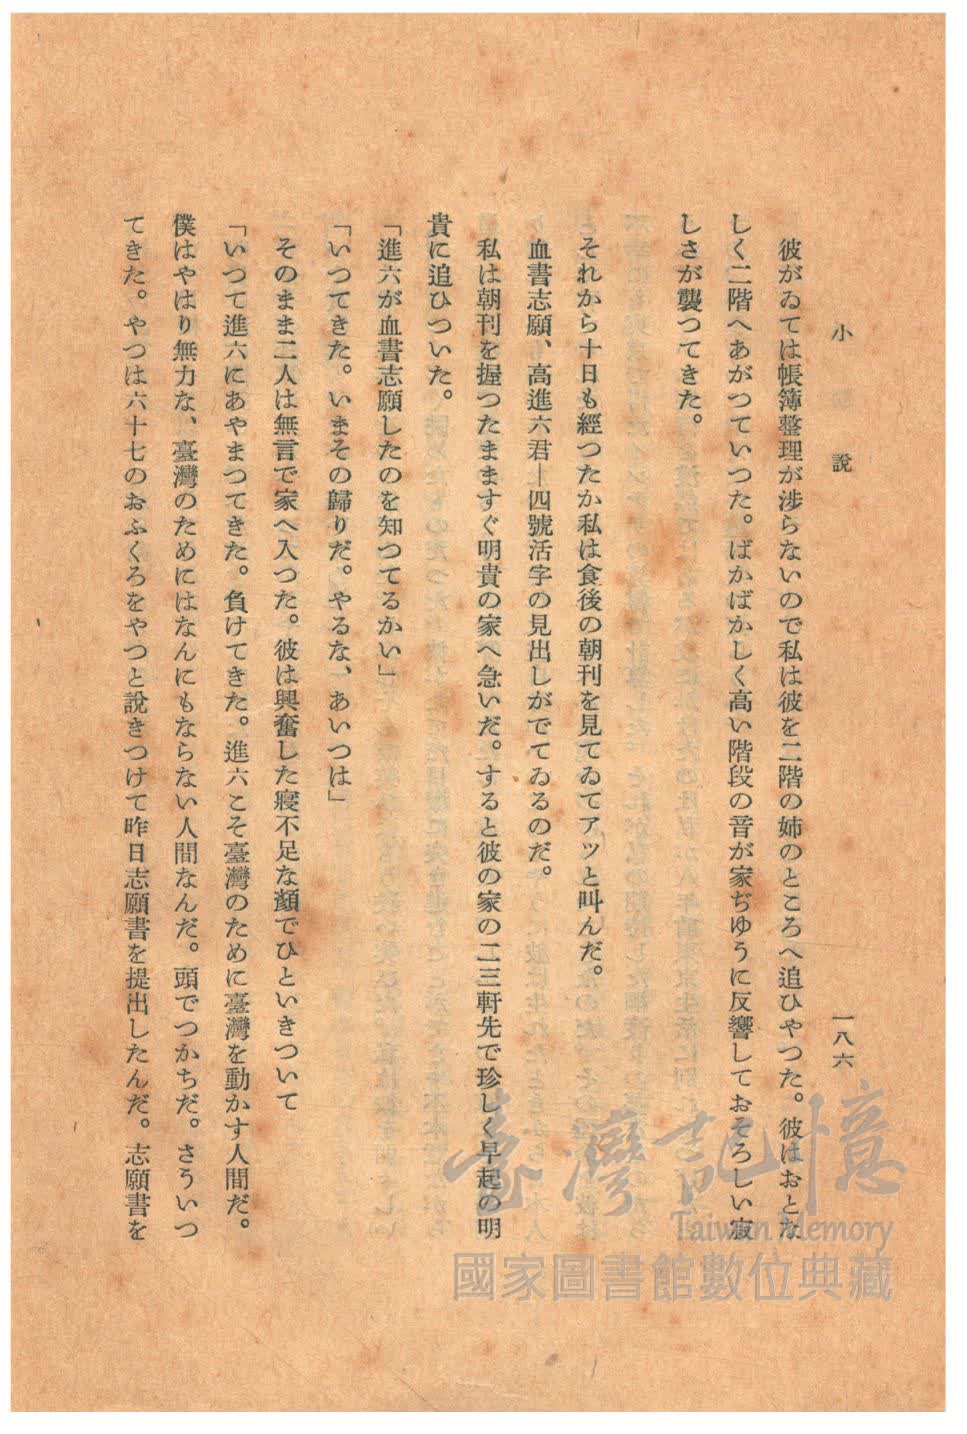 小說
一八六
彼がゐては帳簿整理が涉らないので私は彼を二階の姉のところへ追ひやつた。彼はおとな
しく二階へあがつていつた。ばかばかしく高い階段の音が家ぢゆうに反響しておそろしい寂
しさが襲つてきた。
それから十日も經つたか私は食後の朝刊を見てゐてアッと叫んだ。
血書志願、高進六君―四號活字の見出しがでてゐるのだ。
私は朝刊を握つたますぐ明貴の家へ急いだ。すると彼の家の二三軒先で珍しく早起の明
貴に追ひついた。
「進六が血書志願したのを知つてるかい」
「いつてきた。いまその歸りだ。やるな、あいつは」
そのまま二人は無言で家へ入つた。彼は興奮した寢不足な顏でひといきついて
「いつて進六にあやまつてきた。負けてきた。進六こそ臺灣のために臺灣を動かす人間だ。
僕はやはり無力な、臺灣のためにはなんにもならない人間なんだ。頭でつかちだ。さういつ
てきた。やつは六十七のおふくろをやつと說きつけて昨日志願書を提出したんだ。志願書を
臺灣記憶
Taiwan Memory
國家圖書館數位典藏